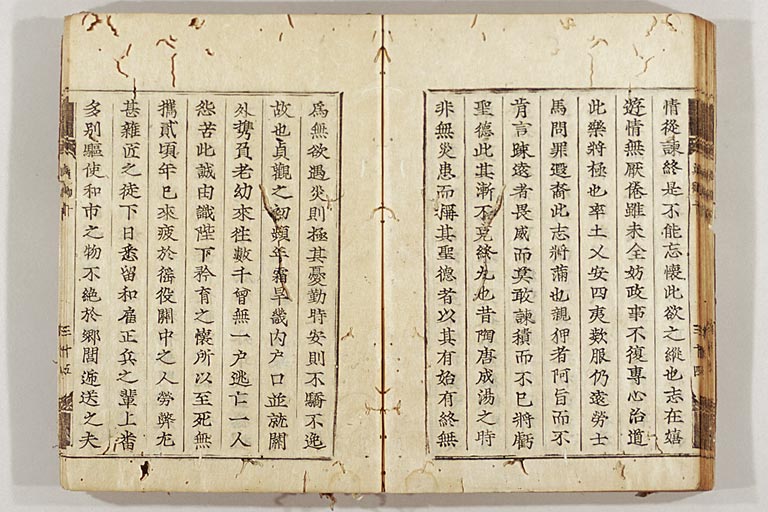 情從諫終是不能忘懷此欲之縱也志在嬉
遊情無厭倦雖未全妨政事不復專心治道
此樂將極也率土乂安四夷欵服仍遠勞士
馬問罪遐裔此志將滿也親狎者阿旨而不
肯言踈遠者畏威而莫敢諫積而不已將虧
聖德此其漸不克終九也昔陶唐成湯之時
非無災患而稱其聖德者以其有始有終無
爲無欲遇災則極其憂勤時安則不驕不逸
故也貞觀之初頻年霜旱畿內户口並就關
外携負老幼來往數千曾無一户逃亡一人
怨苦此誠由識陛下矜育之懷所以至死無
攜貳頃年已來疲於徭役關中之人勞弊尤
甚雜匠之徒下日悉留和雇正兵之輩上番
多别驅使和市之物不絶於郷閭逓送之夫
三十四
三十五